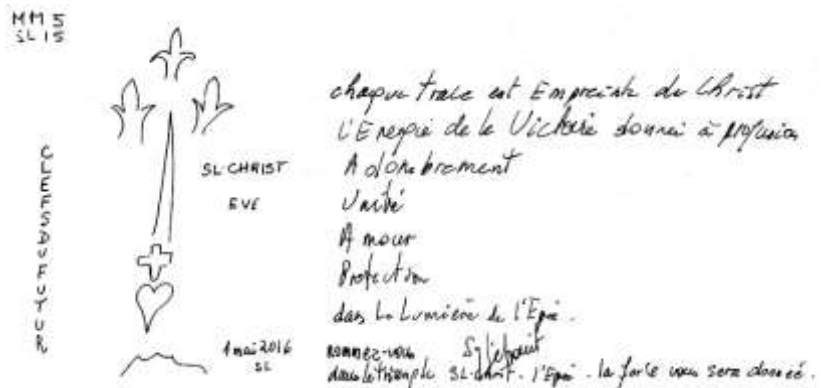 MM5
SL15
CLEFSDUFUTUR
SL-CHRIST
EVE
1 mai 2016
SL
chaque trace est Empreinte du Christ
l'Energie de la Victoire donnée à profusion
Adombrement
Unité
Amour
Protection
dans La Lumière de l'Epée.
nommez-vous
dans le triangle SL-Christ-l'Epée - la force vous sera donnée.